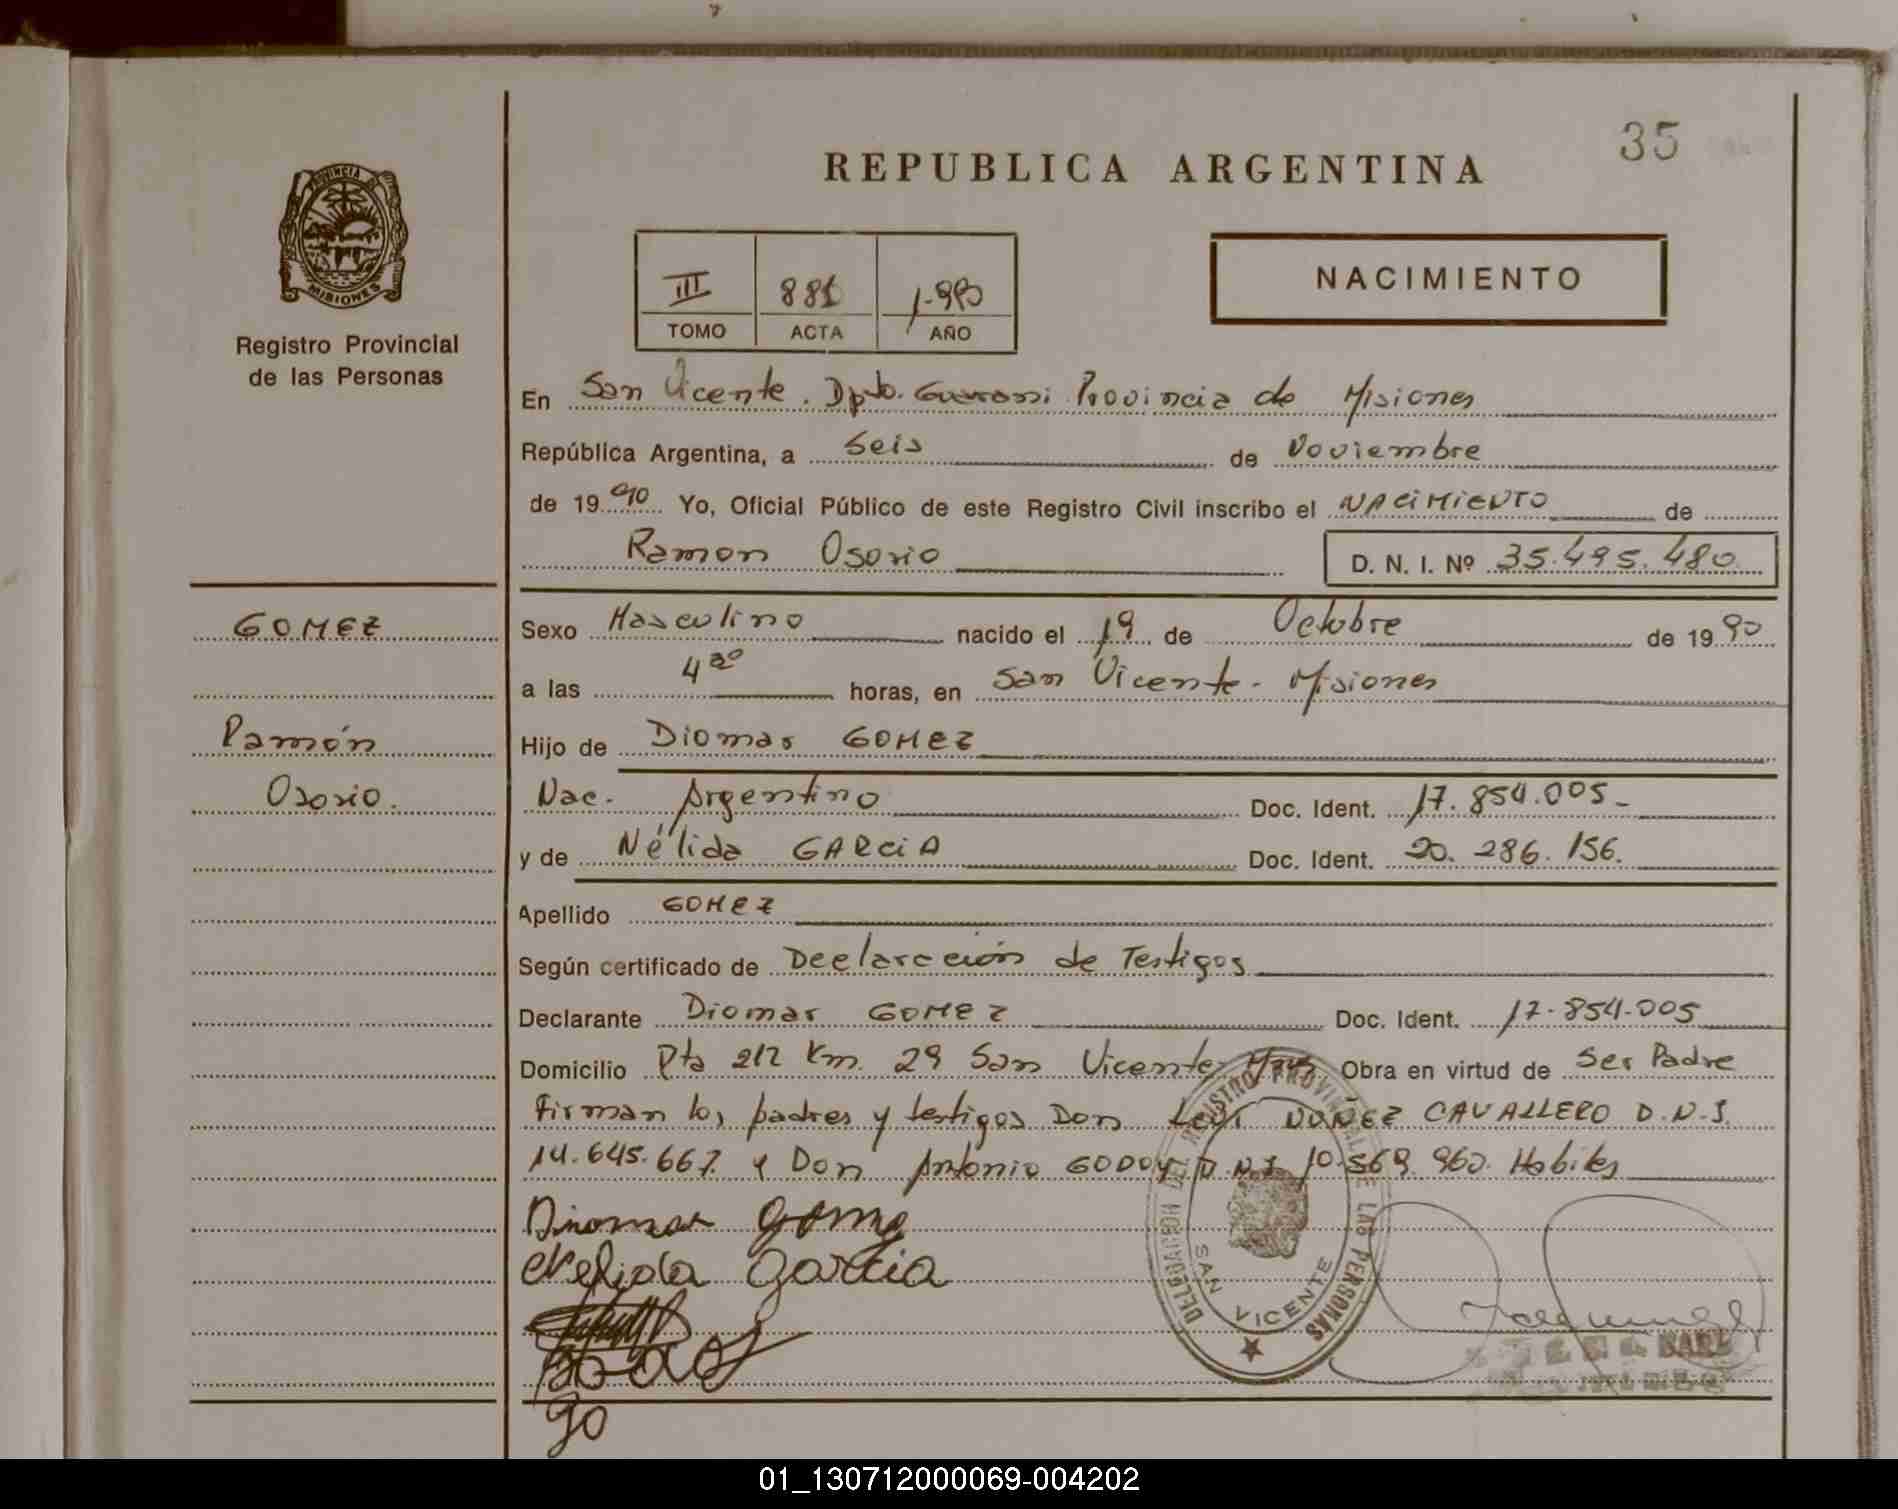 35
REPUBLICA ARGENTINA
PROVINCIA DE
MISIONES
Registro Provincial
de las Personas
III 881 1.990
TOMO ACTA AÑO
NACIMIENTO
En San Vicente. Dpto. Guarani Provincia de Misiones
República Argentina, a Seis de Noviembre
de 1990 Yo, Oficial Público de este Registro Civil inscribo el NACIMIENTO de
Ramon Osorio D. N. I. Nº 35.495.480
GOMEZ
Ramón
Osorio.
Sexo Masculino nacido el 19 de Octubre de 1990
a las 4 horas, en San Vicente - Misiones
Hijo de Diomar GOMEZ
Nac. Argentino Doc. Ident. 17.854.005-
y de Nélida GARCIA Doc. Ident. 20.286.156.
Apellido GOMEZ
Según certificado de Declaracción de Testigos
Declarante Diomar GOMEZ Doc. Ident. 17.854.005
Domicilio Rta 212 Km. 29 San Vicente Mnes Obra en virtud de Ser Padre
Firman los padres y testigos Don Levi NUÑEZ CAVALLERO D.N.I.
14.645.667. y Don Antonio GODOY D.N.I 10.569.960. Habiles
Diomar Gomez
Nelida Garcia
go
DELEGACION DEL REGISTRO PROVINCIAL DE LAS PERSONAS
SAN VICENTE
01_130712000069-004202